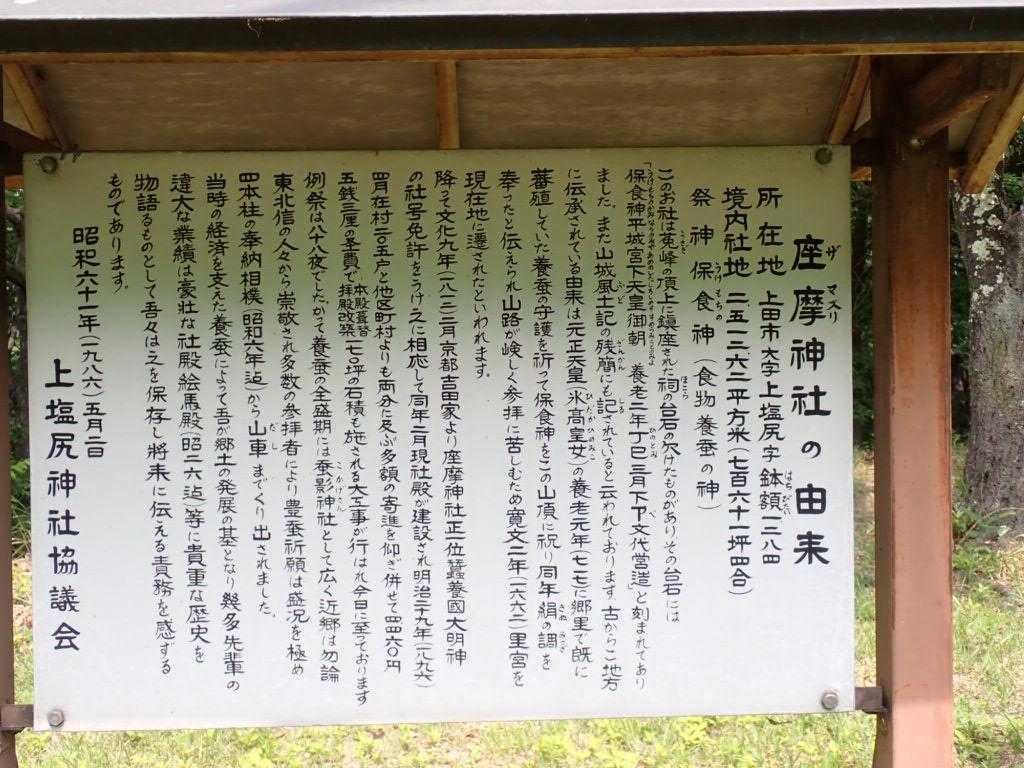 座摩神社の由来
所在地 上田市大字上塩尻字鉢額一三八四
境内社地 二五一二六二平方米(七百六十一坪四合)
祭神 保食神(食物養蚕の神)
このお社は兎峰の頂上に鎮座された祠の台石の欠けたものがありその台石には
「保食神平城宮下天皇御朝 養老二年丁巳三月下下文代営造」と刻まれてあり
ました。また山城風土記の残簡にも記されていると云われております。古からこ地方
に伝承されている由来は元正天皇(氷高皇女)の養老元年(七一七)に郷里で既に
蕃殖していた養蚕の守護を祈って保食神をこの山頂に祀り同年絹の調を
奉ったと伝えられ山路が峻しく参拝に苦しむため寛文二年(一六六二)里宮を
現在地に遷されたといわれます。
降って文化九年(一八一二)三月京都吉田家より座摩神社正一位蠶養國大明神
の社号免許をうけえに相応して同年二月現社殿が建設され明治二十九年(一八九六)
四月在村二〇五戸と他区町村よりも両分に及ぶ多額の寄進を仰ぎ併せて四四六〇円
五銭三厘の圣費で本殿葺替拝殿改築一七〇坪の石積も施される大工事が行はれ今日に至っております
例祭は八十八夜でしたかつて養蚕の全盛期には蚕影神社として広く近郷は勿論
東北信の人々から崇敬され多数の参拝者により豊蚕祈願は盛況を極め
四本柱の奉納相撲(昭和六年迄)から山車までくり出されました。
当時の経済を支えた養蚕によって吾が郷土の発展の基となり幾多先輩の
偉大な業績は豪壮な社殿絵馬殿(昭二六迄)等に貴重な歴史を
物語るものとして吾々はえを保存し将来に伝える責務を感ずる
ものであります。
昭和六十一年(一九八六)五月二日
上塩尻神社協議会